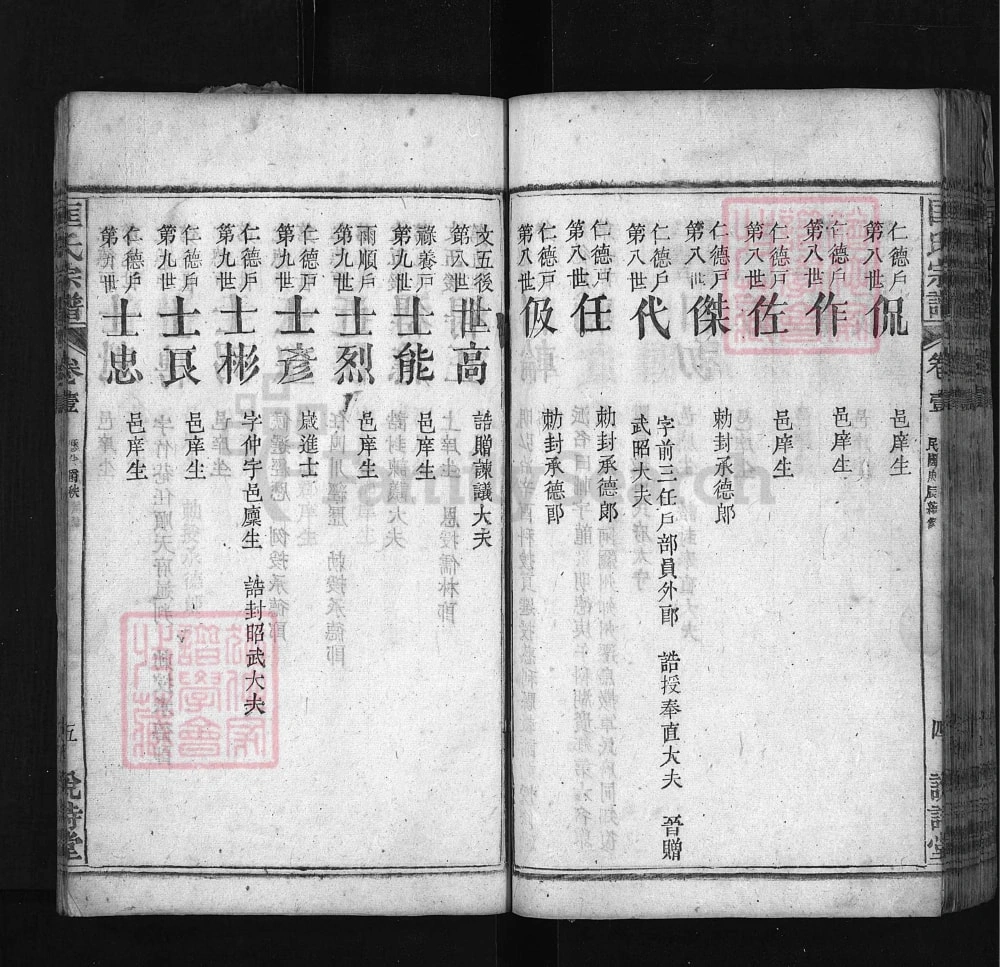 仁德戶 第八世 侃 邑庠生
仁德戶 第八世 作 邑庠生
仁德戶 第八世 佐 邑庠生
仁德戶 第八世 傑 勅封承德郎
仁德戶 第八世 代 字前三任戶部員外郎 誥授奉直大夫 晉贈
武昭大夫
仁德戶 第八世 任 勅封承德郎
仁德戶 第八世 伋 勅封承德郎
匡氏宗譜 卷壹 四
匡氏宗譜 卷壹 五 說詩堂
文五後 第八世 世高 誥贈諫議大夫
祿養戶 第九世 士能 邑庠生
雨順戶 第九世 士烈 邑庠生
仁德戶 第九世 士彥 歲進士
仁德戶 第九世 士彬 字仲宇邑廩生 誥封昭武大夫
仁德戶 第九世 士良 邑庠生
仁德戶 第九世 士忠 邑庠生
FamilySearch